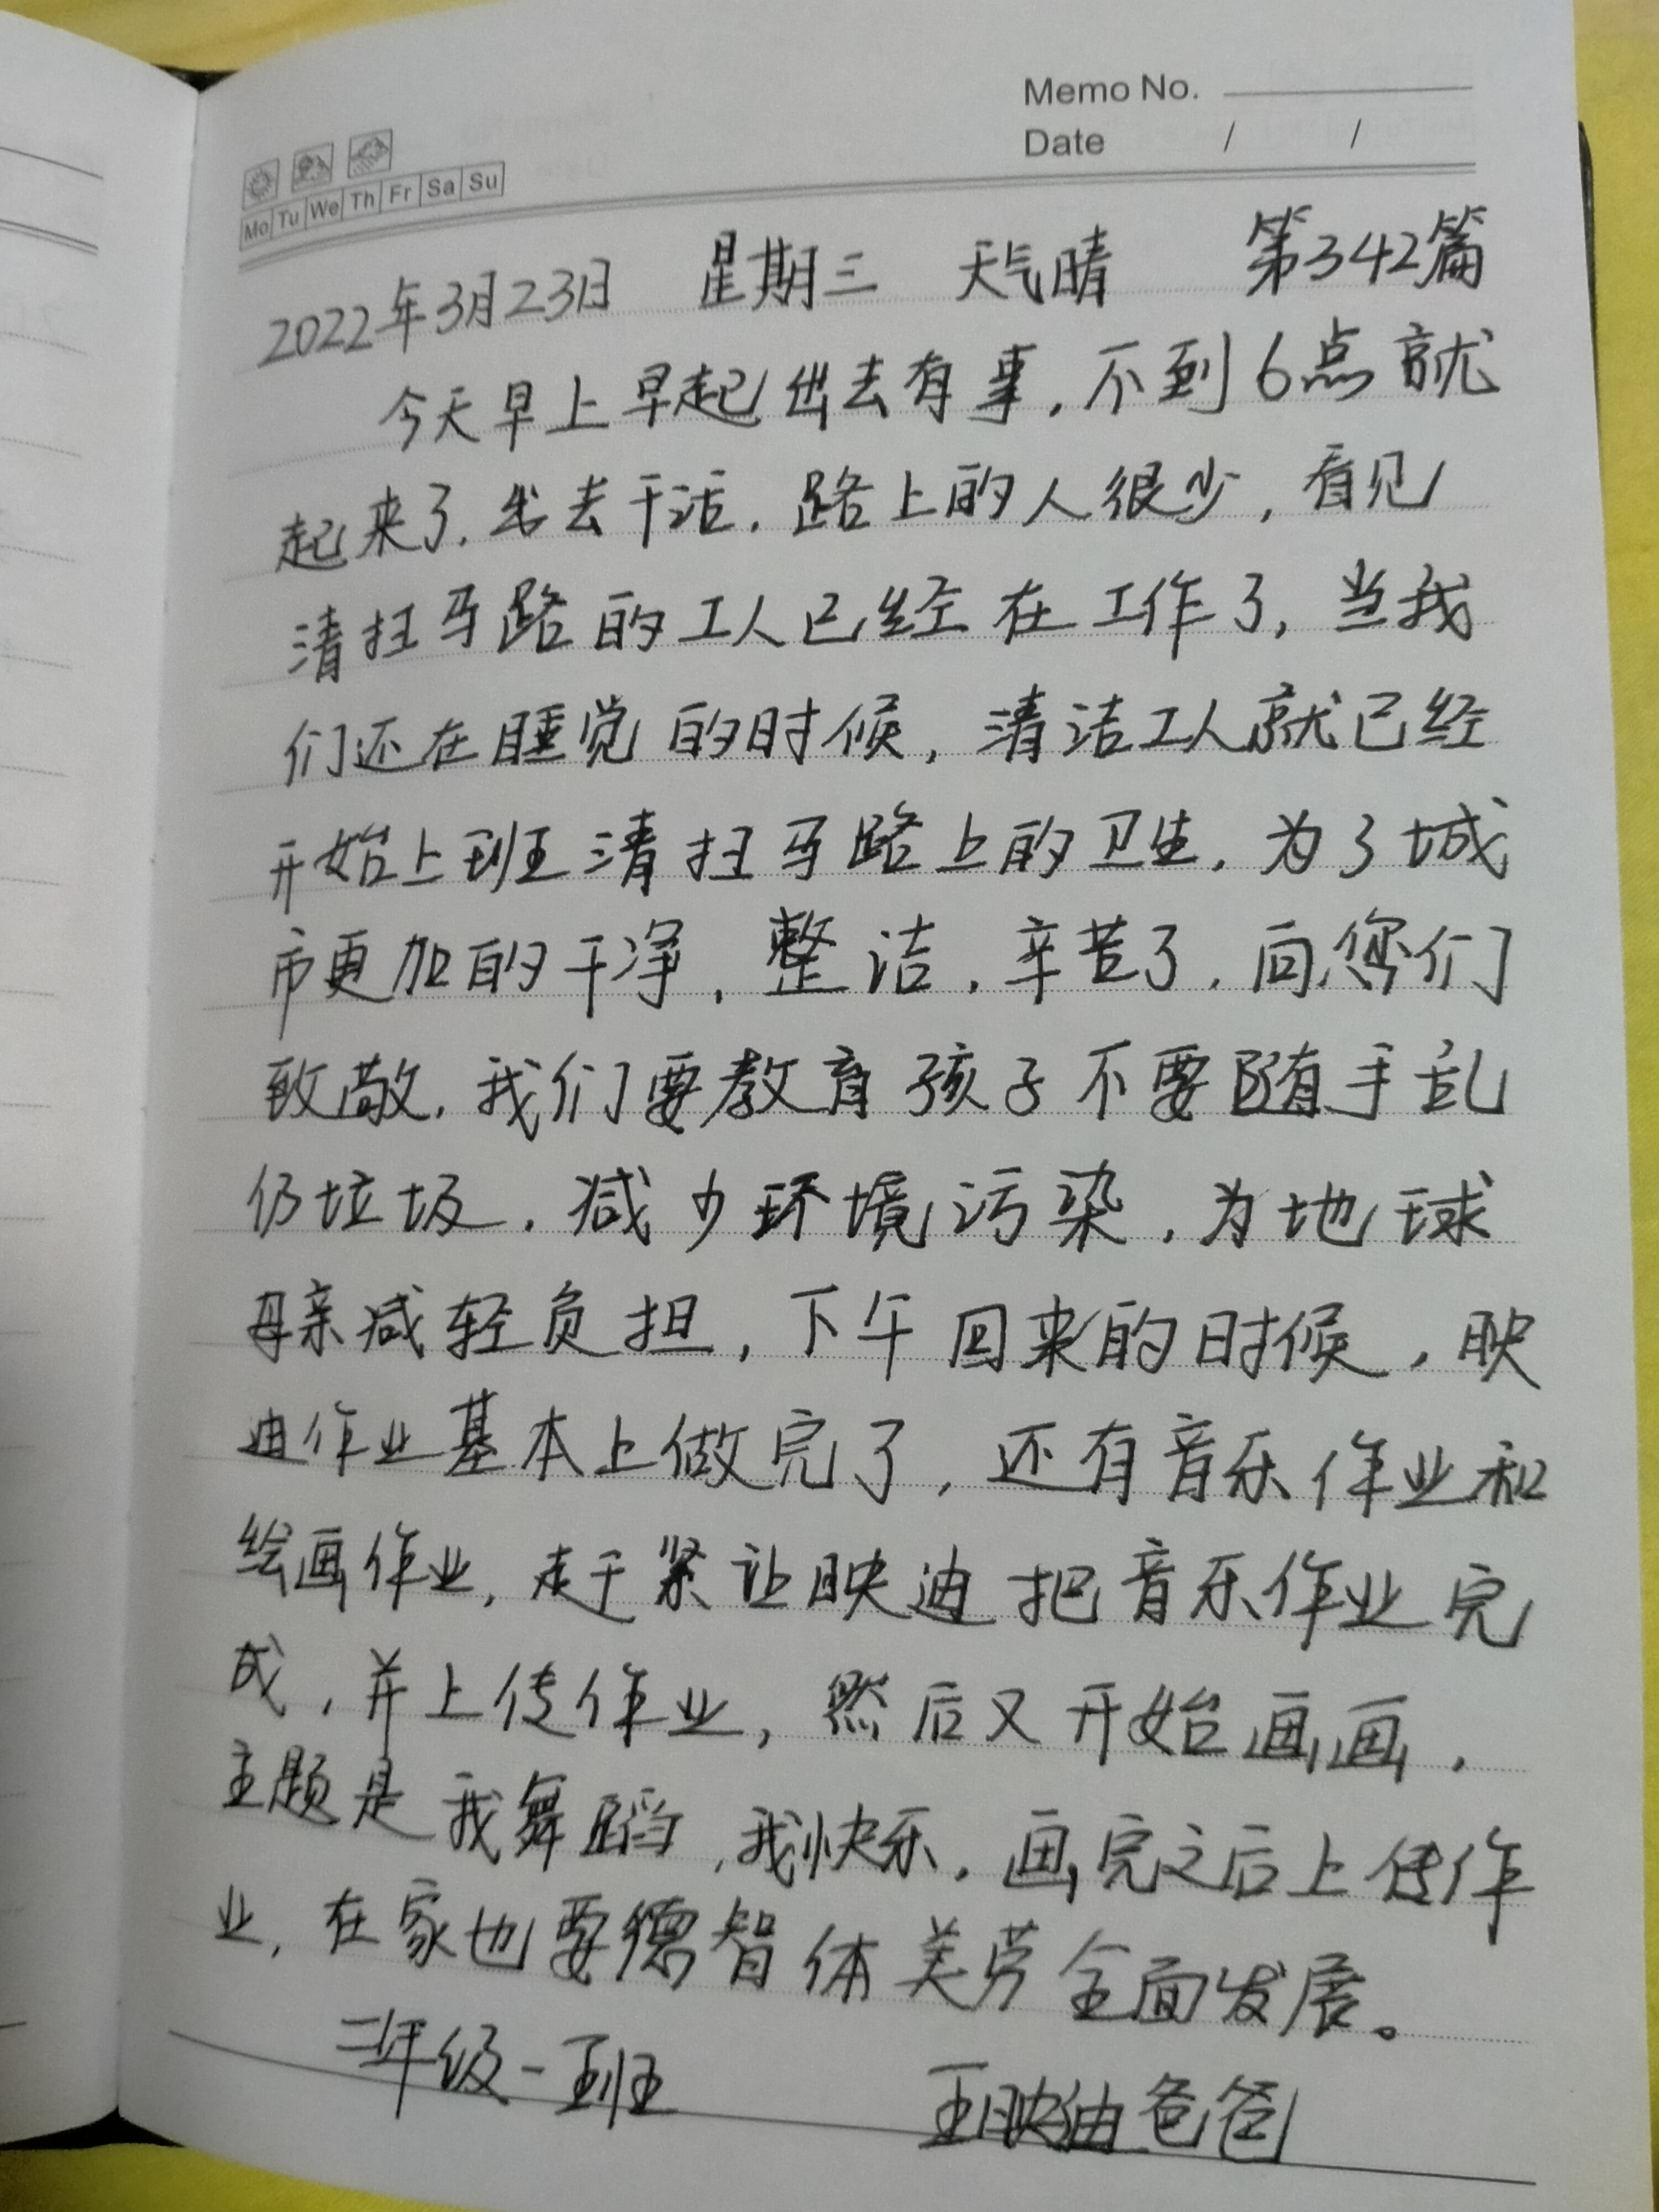 Memo No.
Date / /
Mo Tu We Th Fr Sa Su
2022年3月23日 星期三 天气晴 第342篇
今天早上早起出去有事,不到6点就
起来了,出去干活,路上的人很少,看见
清扫马路的工人已经在工作了,当我
们还在睡觉的时候,清洁工人就已经
开始上班清扫马路上的卫生,为了城
市更加的干净,整洁,辛苦了,向您们
致敬,我们要教育孩子不要随手乱
仍垃圾,减少环境污染,为地球
母亲减轻负担,下午回来的时候,映
迪作业基本上做完了,还有音乐作业和
绘画作业,赶紧让映迪把音乐作业完
成,并上传作业,然后又开始画画,
主题是我舞蹈,我快乐,画完之后上传作
业,在家也要德智体美劳全面发展。
二年级一班 王映迪爸爸